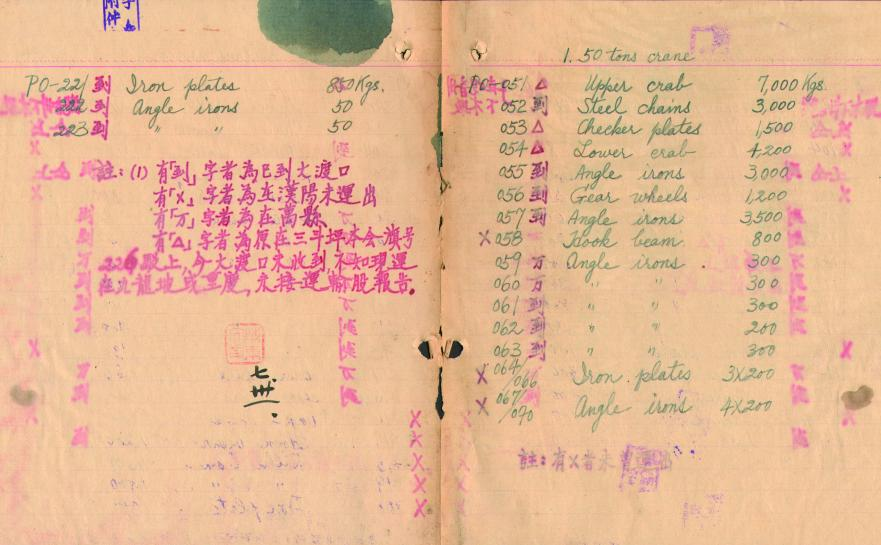 附件
PO-221 到 Iron plates 850 Kgs.
222 到 Angle irons 50
223 到 " " 50
註: (1) 有「到」字者為已到大渡口
有「X」字者為在漢陽未運出
有「万」字者為在萬縣
有「△」字者為原在三斗坪本会旗号
226 駁上, 今大渡口未收到不知現運
在九龍坡或重慶, 未接運輸股報告。
1. 50 tons crane
PO-051 △ Upper crab 7,000 Kgs.
052 到 Steel chains 3,000
053 △ Checker plates 1,500
054 △ Lower crab 4,200
055 到 Angle irons 3,000
056 到 Gear wheels 1,200
057 到 Angle irons 3,500
X 058 Hook beam 800
059 万 Angle irons 300
060 万 " " 300
061 到 " " 300
062 到 " " 200
063 到 " " 300
X 064/066 Iron plates 3X200
X 067/070 Angle irons 4X200
註: 有X者未曾運出